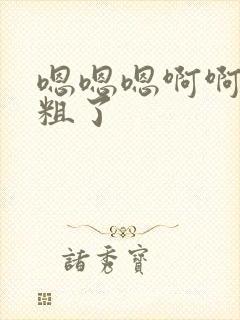 嗯嗯嗯啊啊
粗了
诸秀宝